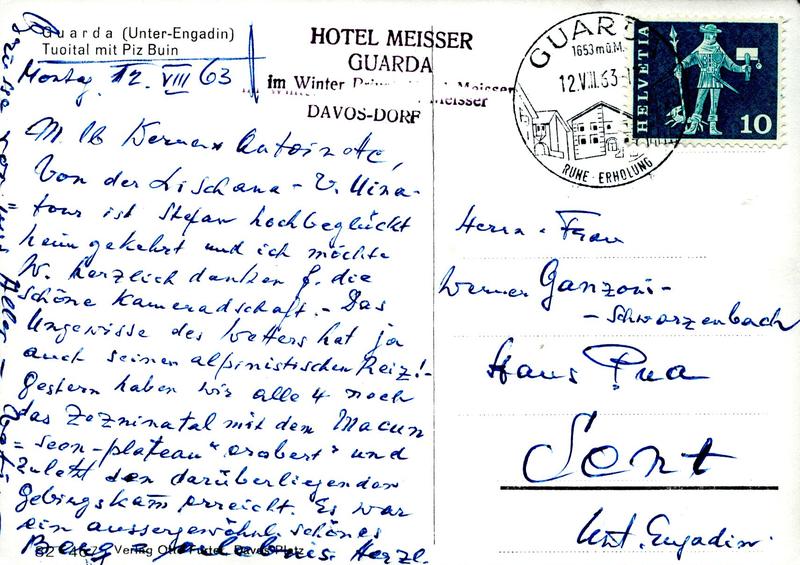 Guarda (Unter-Engadin)
Tuoital mit Piz Buin
HOTEL MEISSER
GUARDA
im Winter
Meisser
DAVOS-DORF
GUARDA
1653 m ü. M.
12.VIII.63
RUHE · ERHOLUNG
HELVETIA
10
Montag, 12. VIII 63
M lb Werner & Antoinette,
Von der Lischana - V. Uina-
tour ist Stefan hochbeglückt
heimgekehrt und ich möchte
herzlich danken f. die
schöne Kameradschaft. - Das
Ungewisse des Wetters hat ja
auch seinen alpinistischen Reiz! -
Gestern haben wir alle 4 noch
das Zezninatal mit dem Macun
= seon-plateau "erobert" und
zuletzt den darüberliegenden
Gebirgskam erreicht. Es war
ein aussergewöhnl. schönes
Berg = erlebnis. Herzl.
Grüsse von uns Allen
Herrn & Frau
Werner Ganzoni-
- Schwarzenbach
Haus Prea
Sent
Unt. Engadin.
Verlag Otto Furter, Davos-Platz